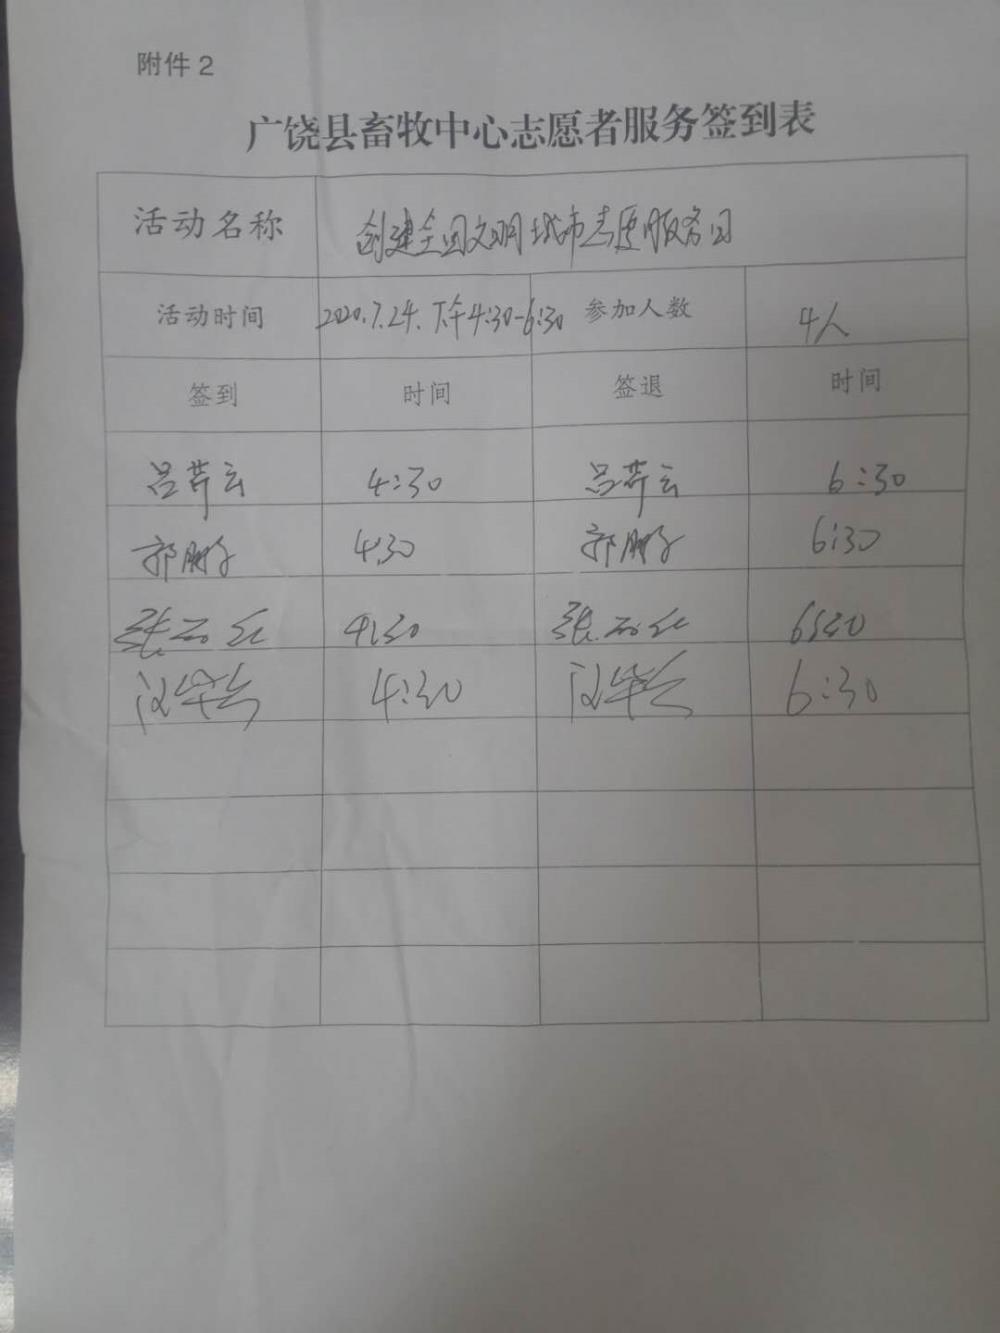 附件2
广饶县畜牧中心志愿者服务签到表
活动名称 创建全国文明城市志愿服务日
活动时间 2020.7.24.下午4:30-6:30 参加人数 4人
签到 时间 签退 时间
吕芹云 4:30 吕芹云 6:30
郭鹏 4:30 郭鹏 6:30
张 4:30 张 6:30
4:30 6:30